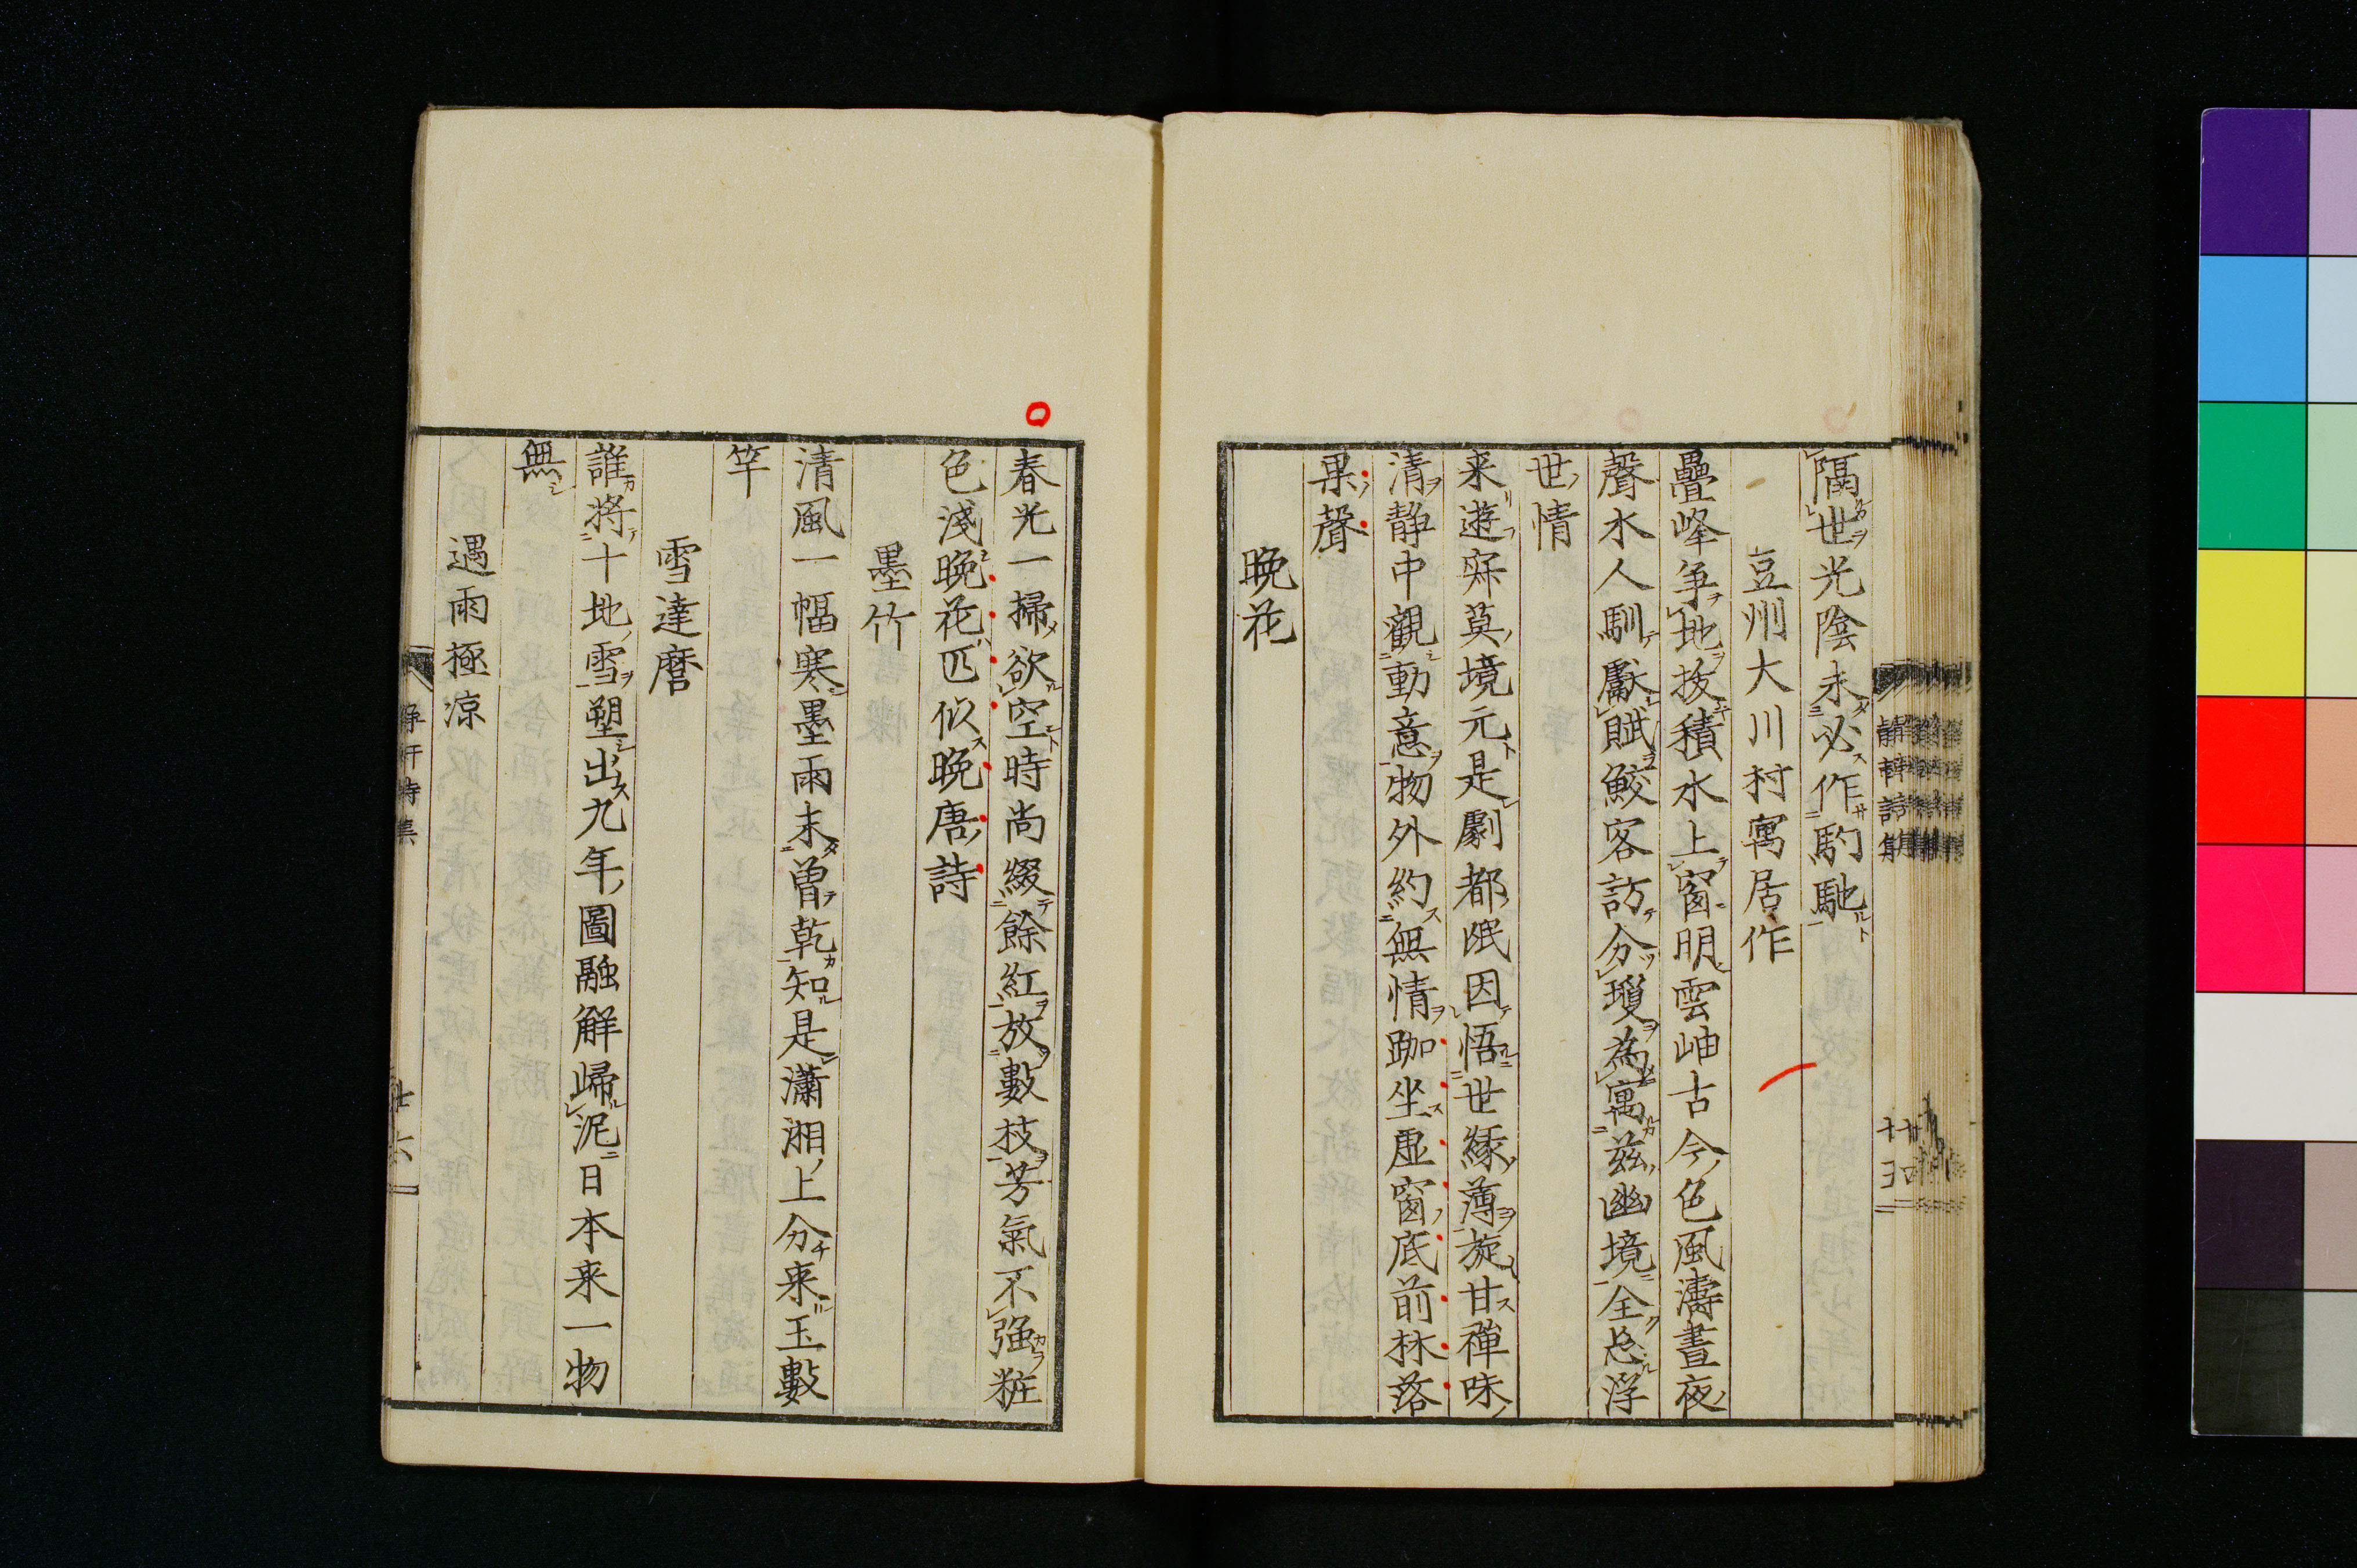 隔世光陰未必作駒馳
豆州大川村寓居作
疊峰爭地抜積水上窗明雲岫古今色風濤晝夜
聲水人馴獻賦鮫客訪分瓊為寓茲幽境全忘浮
世情
来遊寂莫境元是劇都氓因悟世縁薄旋甘禪味
清静中觀動意物外約無情跏坐虚窗底前林落
果聲
晩花
春光一掃欲空時尚綴餘紅放數枝芳氣不強粧
色淺晩花匹似晩唐詩
墨竹
清風一幅寒墨雨未曾乾知是瀟湘上分来玉數
竿
雪達磨
誰將十地雪塑出九年圖融解歸泥日本来一物
無
遇雨極凉